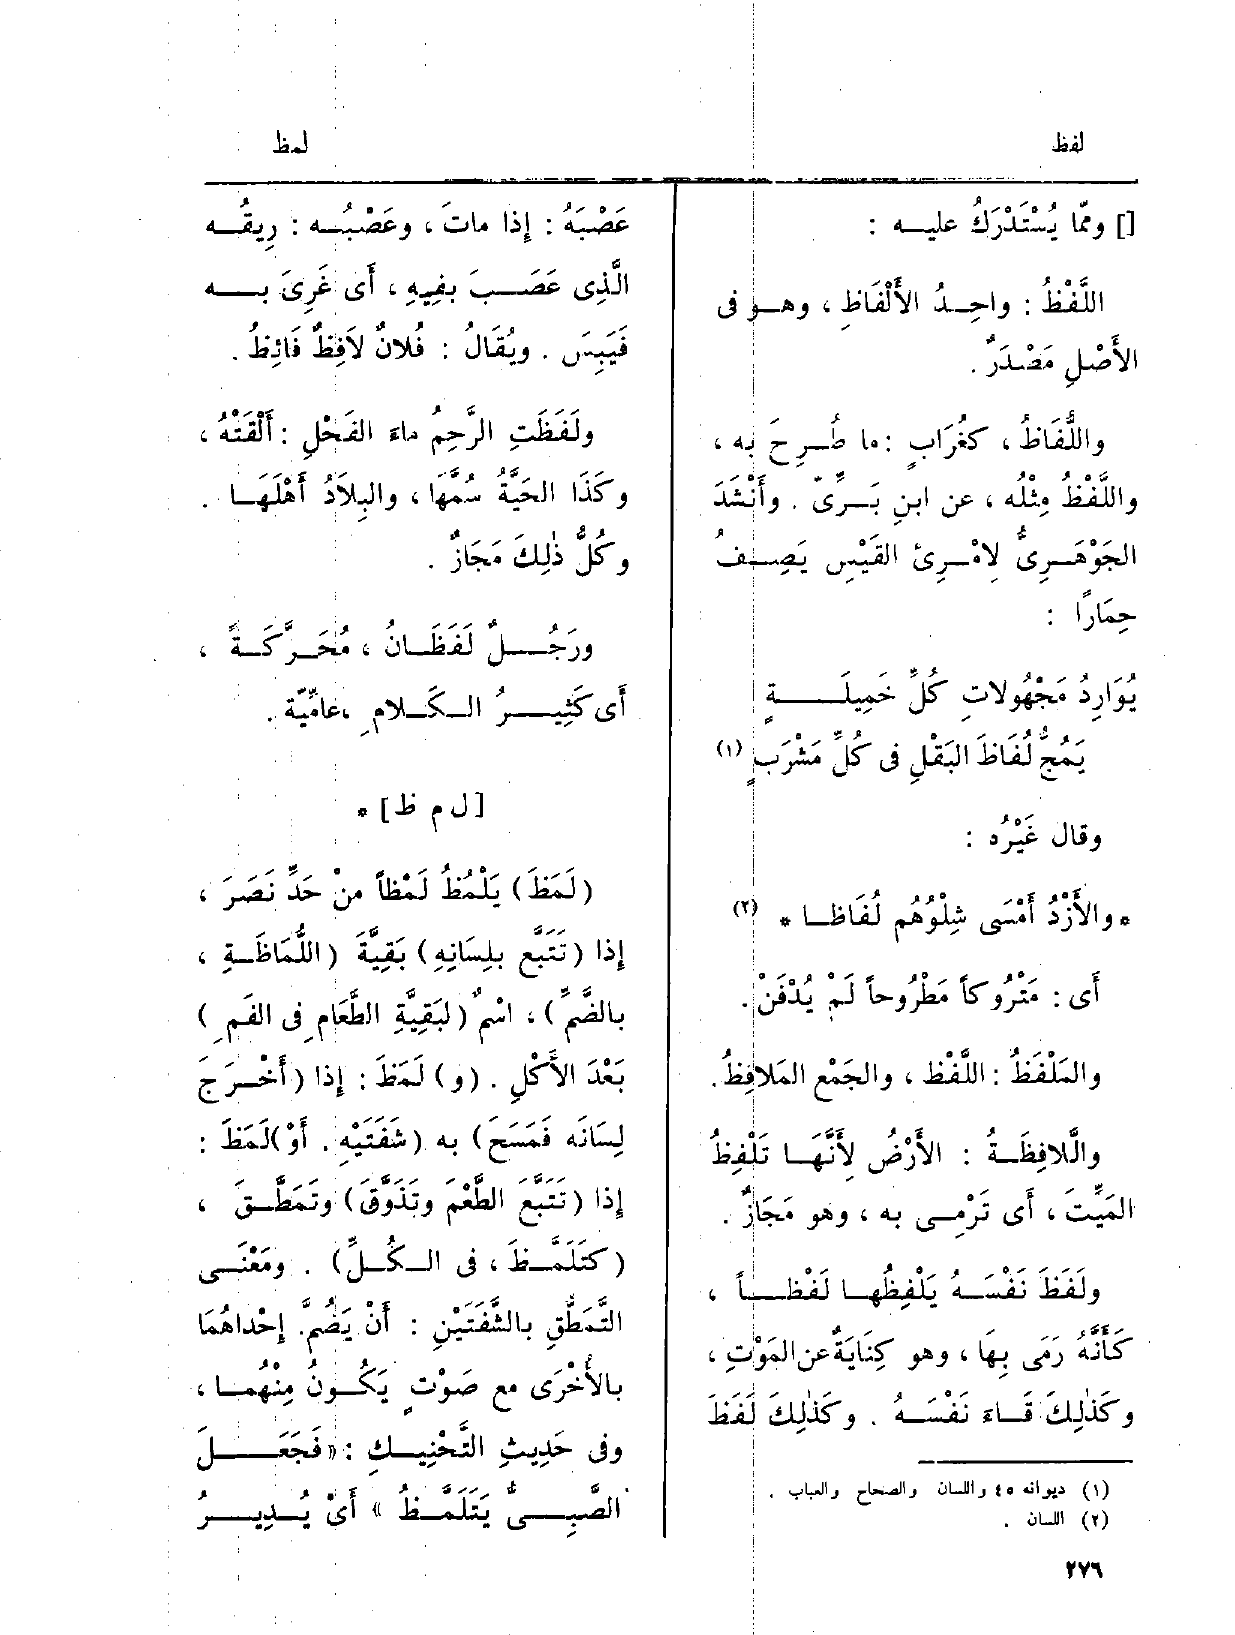 لفظ
لمظ
[] وممّا يُسْتَدْرَكُ عليـه :
اللَّفْظُ : واحِـدُ الأَلْفَاظِ ، وهـو فى
الأَصْلِ مَصْدَرٌ .
واللُّفَاظُ ، كغُرَابٍ : ما طُـرِحَ به ،
واللَّفْظُ مِثْلُه ، عن ابنِ بَـرِّىّ . وأَنْشَدَ
الجَوْهَـرِىُّ لامْـرِئ القَيْسِ يَصِـفُ
حِمَارًا :
يُوَارِدُ مَجْهُولاتِ كُلِّ خَمِيلَـــةٍ
يَمُجُّ لُفَاظَ البَقْلِ فى كُلِّ مَشْرَبٍ (١)
وقال غَيْرُه :
* والأَزْدُ أَمْسَى شِلْوُهُم لُفَاظَـا * (٢)
أَى : مَتْرُوكاً مَطْرُوحاً لَمْ يُدْفَنْ .
والمَلْفَظُ : اللَّفْظ ، والجَمْع المَلافِظُ .
واللّافِظَـةُ : الأَرْضُ لأَنَّهَـا تَلْفِظُ
المَيِّتَ ، أَى تَرْمِـى به ، وهو مَجَازٌ .
ولَفَظَ نَفْسَـهُ يَلْفِظُهـا لَفْظــاً ،
كأَنَّهُ رَمَى بِهَا ، وهو كِنَايَةٌ عن المَوْتِ ،
وكَذٰلِكَ قَـاءَ نَفْسَـهُ . وكَذٰلِكَ لَفَظَ
(١) ديوانه ٤٥ واللسان والصحاح والعباب .
(٢) اللسان .
عَصْبَهُ : إذا ماتَ ، وعَصْبُـه : رِيقُـه
الَّذِى عَصَـبَ بفِيهِ ، أَى غَرِىَ بـه
فَيَبِسَ . ويُقَالُ : فُلانٌ لاَفِظٌ فَائِظُ .
ولَفَظَتِ الرَّحِمُ ماءَ الفَحْلِ : أَلْقَتْهُ ،
وكَذَا الحَيَّةُ سُمَّها ، والبِلاَدُ أَهْلَهَـا .
وكُلُّ ذٰلِكَ مَجَازٌ .
ورَجُـــلٌ لَفَظَـانُ ، مُحَـرَّكَـةً ،
أَى كَثِيــرُ الـكَـلامِ ، عامِّيَّة .
[ ل م ظ ] *
(لَمَظَ) يَلْمُظُ لَمْظاً منْ حَدِّ نَصَرَ ،
إذا (تَتَبَّعَ بلِسَانِهِ) بَقِيَّةَ (اللُّمَاظَـةِ ،
بالضَّمِّ) ، اسْمٌ (لبَقِيَّةِ الطَّعَامِ فى الفَمِ )
بَعْدَ الأَكْلِ . (و) لَمَظَ : إذا (أَخْـرَجَ
لِسَانَه فمَسَحَ) به (شَفَتَيْهِ . أَوْ) لَمَظَ :
إذا (تَتَبَّعَ الطَّعْمَ وتَذَوَّقَ) وتَمَطَّـقَ ،
(كتَلَمَّـظَ ، فى الـكُـلِّ) . ومَعْنَـى
التَّمَطُّقِ بالشَّفَتَيْنِ : أَنْ يَضُمَّ إِحْداهُمَا
بالأُخْرَى مع صَوْتٍ يَكُـونُ مِنْهمـا ،
وفى حَدِيثِ التَّحْنِيـكِ : « فَجَعَــلَ
الصَّبِــىُّ يَتَلَمَّـظُ » أَىْ يُــدِيــرُ
٢٧٦